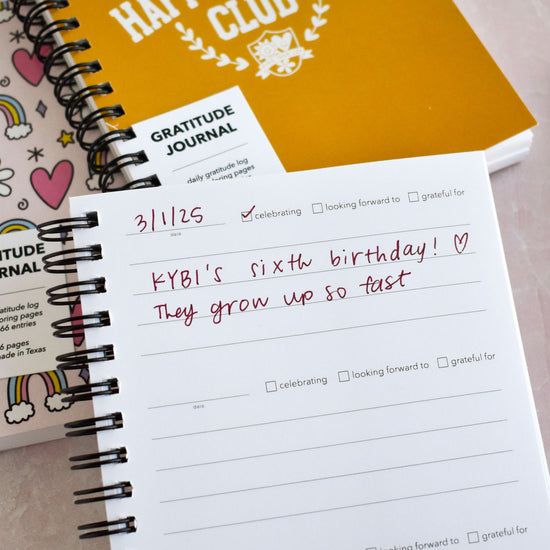 HAPP
CLUB
GRATITUDE
JOURNAL
daily gratitude log
oring pages
RATITUDE
RNAL
atitude log
oring pages
66 entries
6 pages
ade in Texas
3/1/25
date
celebrating
looking forward to
grateful for
KYBI's sixth birthday! ♡
They grow up so fast
date
celebrating
looking forward to
grateful for
looking forward to
grateful for